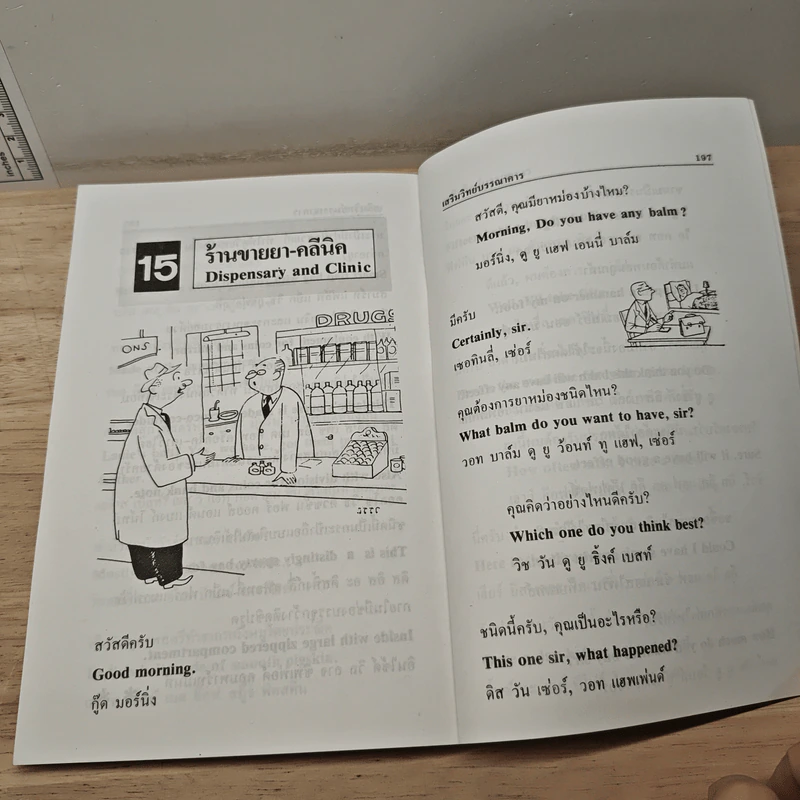 15
ร้านขายยา-คลีนิค
Dispensary and Clinic
DRUGS
ONS
สวัสดีครับ
Good morning.
กู๊ด มอร์นิ่ง
เสริมวิทย์บรรณาคาร
197
สวัสดี, คุณมียาหม่องบ้างไหม?
Morning, Do you have any balm?
มอร์นิ่ง, ดู ยู แฮฟ เอนนี่ บาล์ม
มีครับ
Certainly, sir.
เซอทินลี่, เซ่อร์
คุณต้องการยาหม่องชนิดไหน?
What balm do you want to have, sir?
วอท บาล์ม ดู ยู ว้อนท์ ทู แฮฟ, เซ่อร์
คุณคิดว่าอย่างไหนดีครับ?
Which one do you think best?
วิช วัน ดู ยู ธิ้งค์ เบสท์
ชนิดนี้ครับ, คุณเป็นอะไรหรือ?
This one sir, what happened?
ดิส วัน เซ่อร์, วอท แฮพเพ่นด์
inches